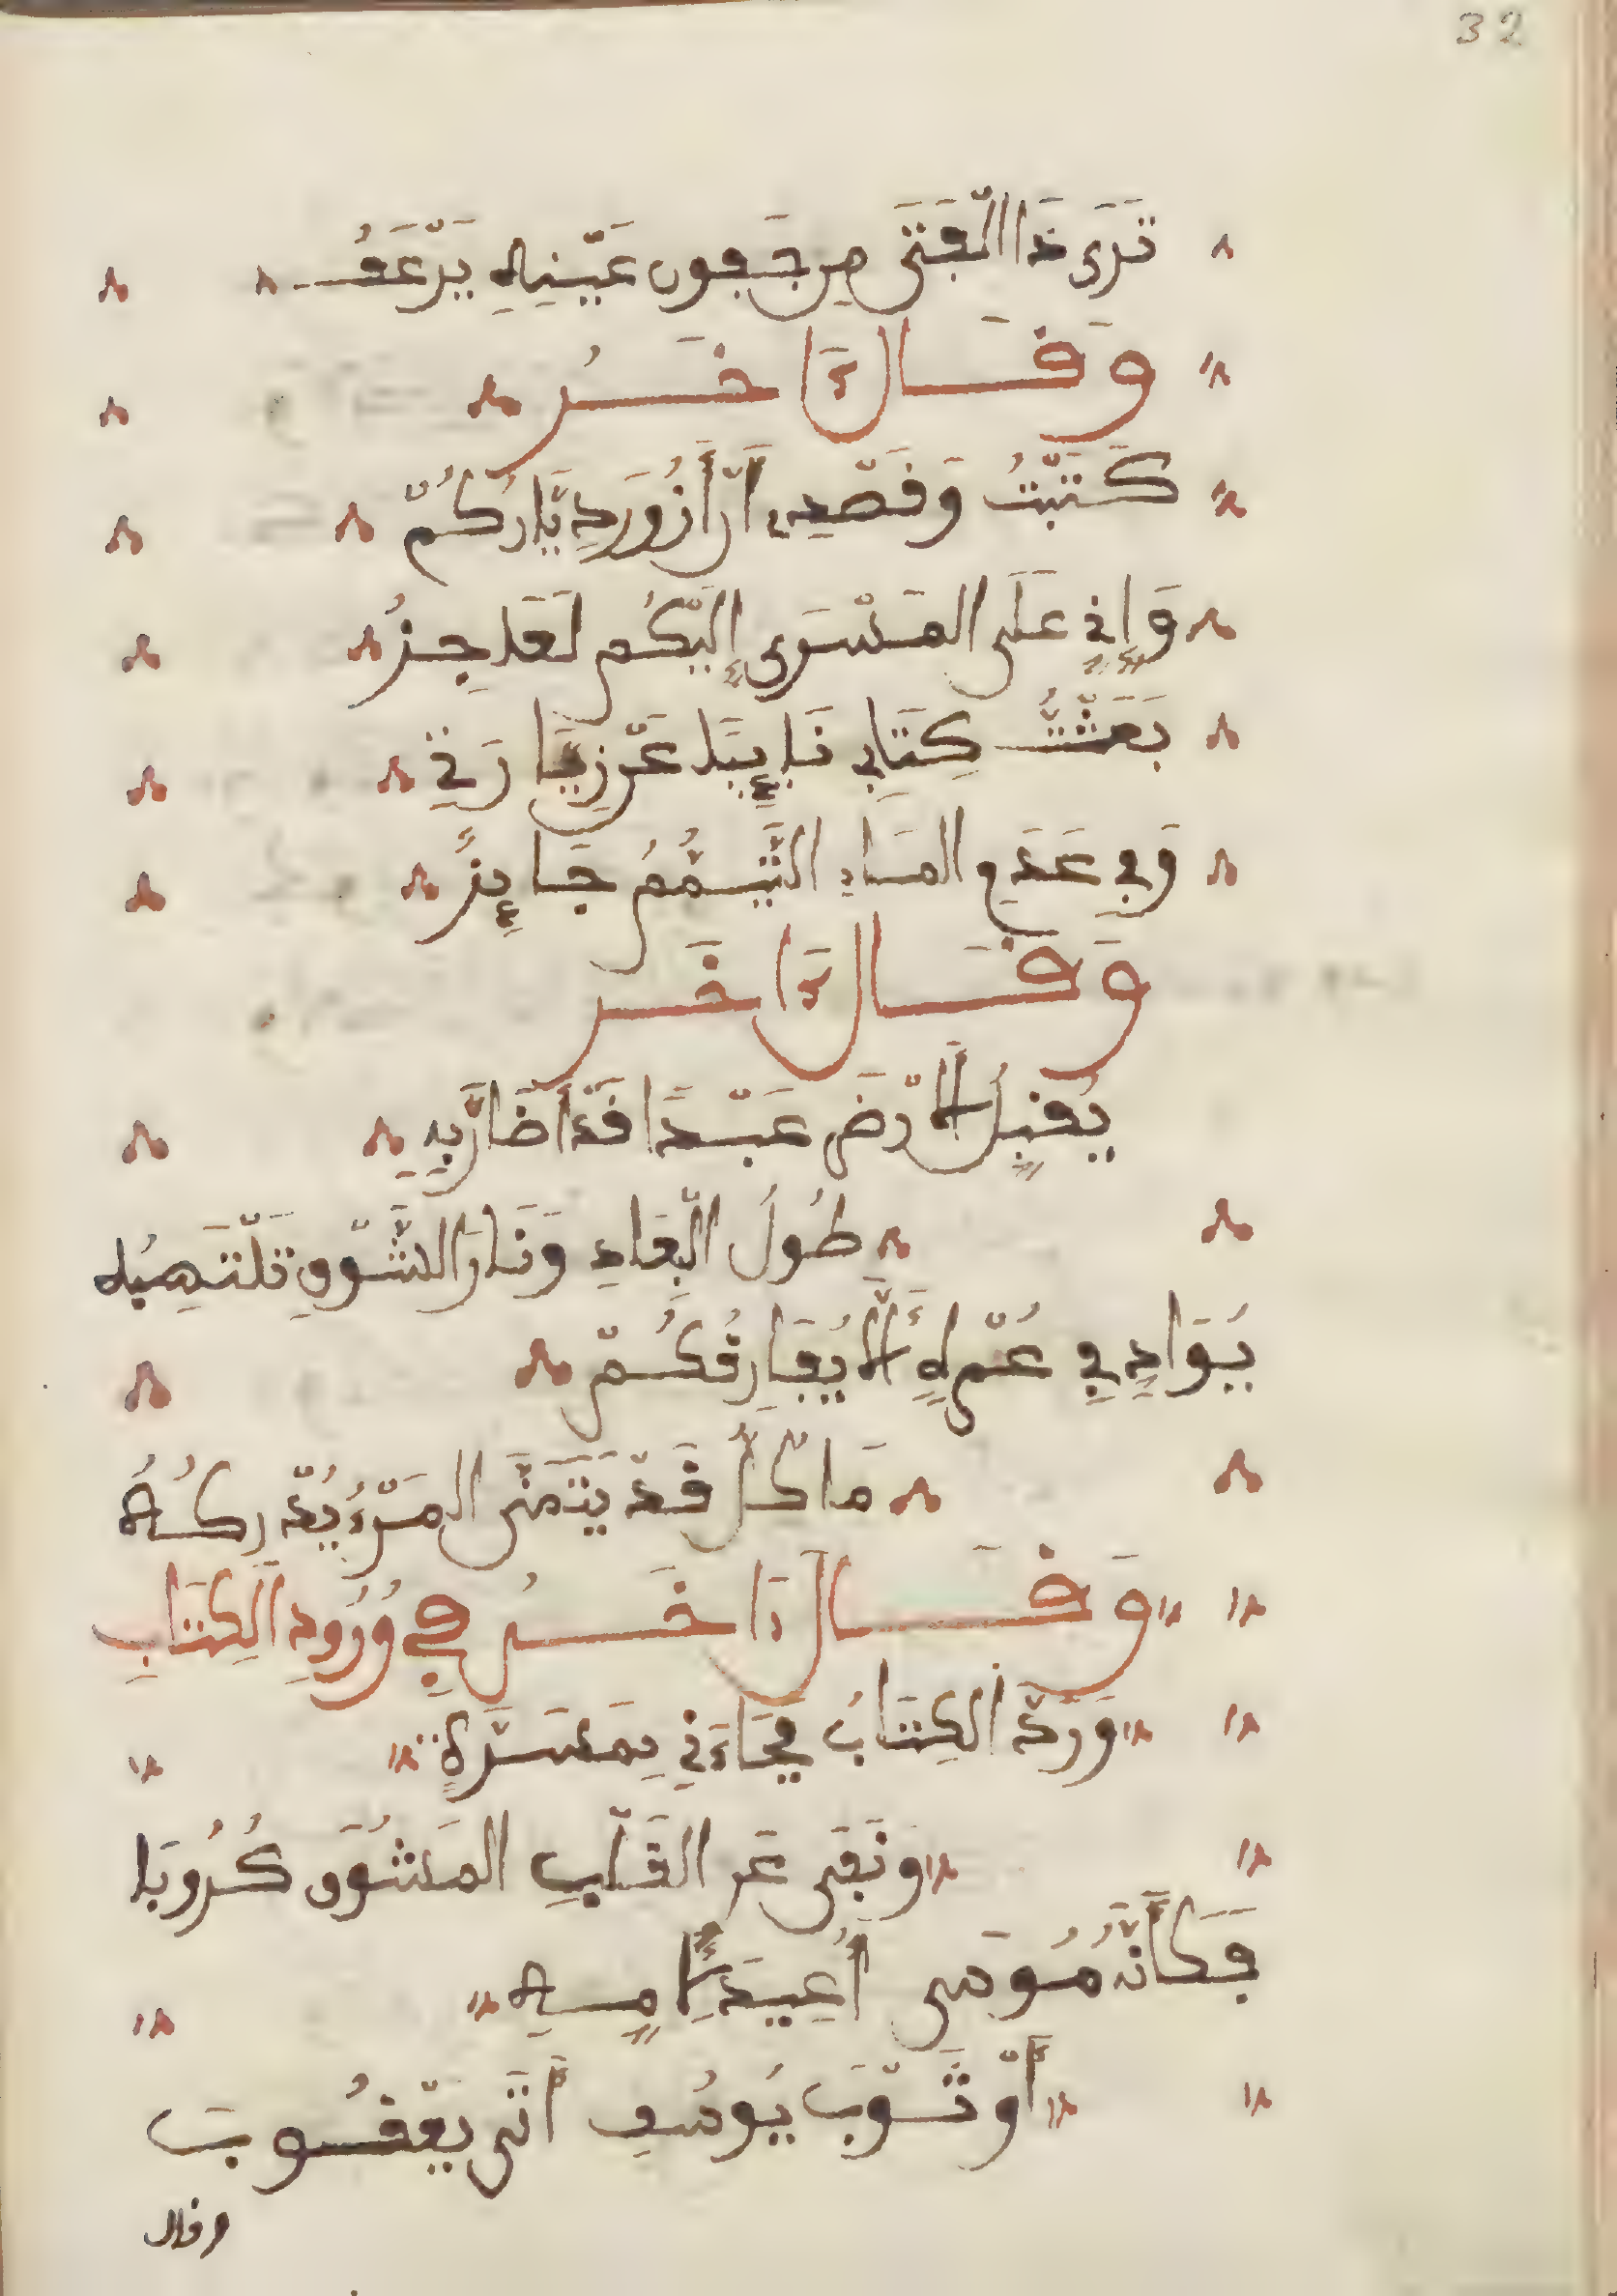 32
تَرَى ذَا الْفَتَى مِن جَفونِ عَيْنِهِ يَرْعَفُ
وَقَالَ ءَاخَرُ
كَتَبْتُ وَقَصْدِي أَنْ أَزُورَ دِيَّارَكُمْ
وَإِنِّي عَلَى المَسْرَى إِلَيْكُم لَعَاجِزُ
بَعَثْتُ كِتَابِي نَايِبًا عَن زِيَارَتِي
وَفِي عَدَمِ المَاءِ التَّيَمُّمُ جَايِزُ
وَقَالَ ءَاخَر
يُقَبِّلُ الأَرْضَ عَبْدًا قَدْ أَضَارَّ بِهِ
طُولُ الْبِعَادِ وَنَارَ الشَّوْقِ تَلْتَهِبُه
بُوَادِي فِي عُمْرِهِ أَلَّا يُفَارِقُكُمْ
مَا كُلُّ قَدْ يَتَمَنَّى المَرْءُ يُدْرِكُهُ
وَقَالَ ءَاخَرُ فِي وُرُودِ الكِتَابِ
وَرَدَ الكِتَابُ فَجَاءَنِي بِمَسَرَّةٍ
وَنَفَى عَنِ القَلْبِ المَشُوقِ كُرُوبَا
فَكَأَنَّهُ مُوسَى أُعِيدَ لِأُمِّهِ
أَوْ ثَوْبَ يُوسُفِ أَتَى يَعْقُوبَ
وقال